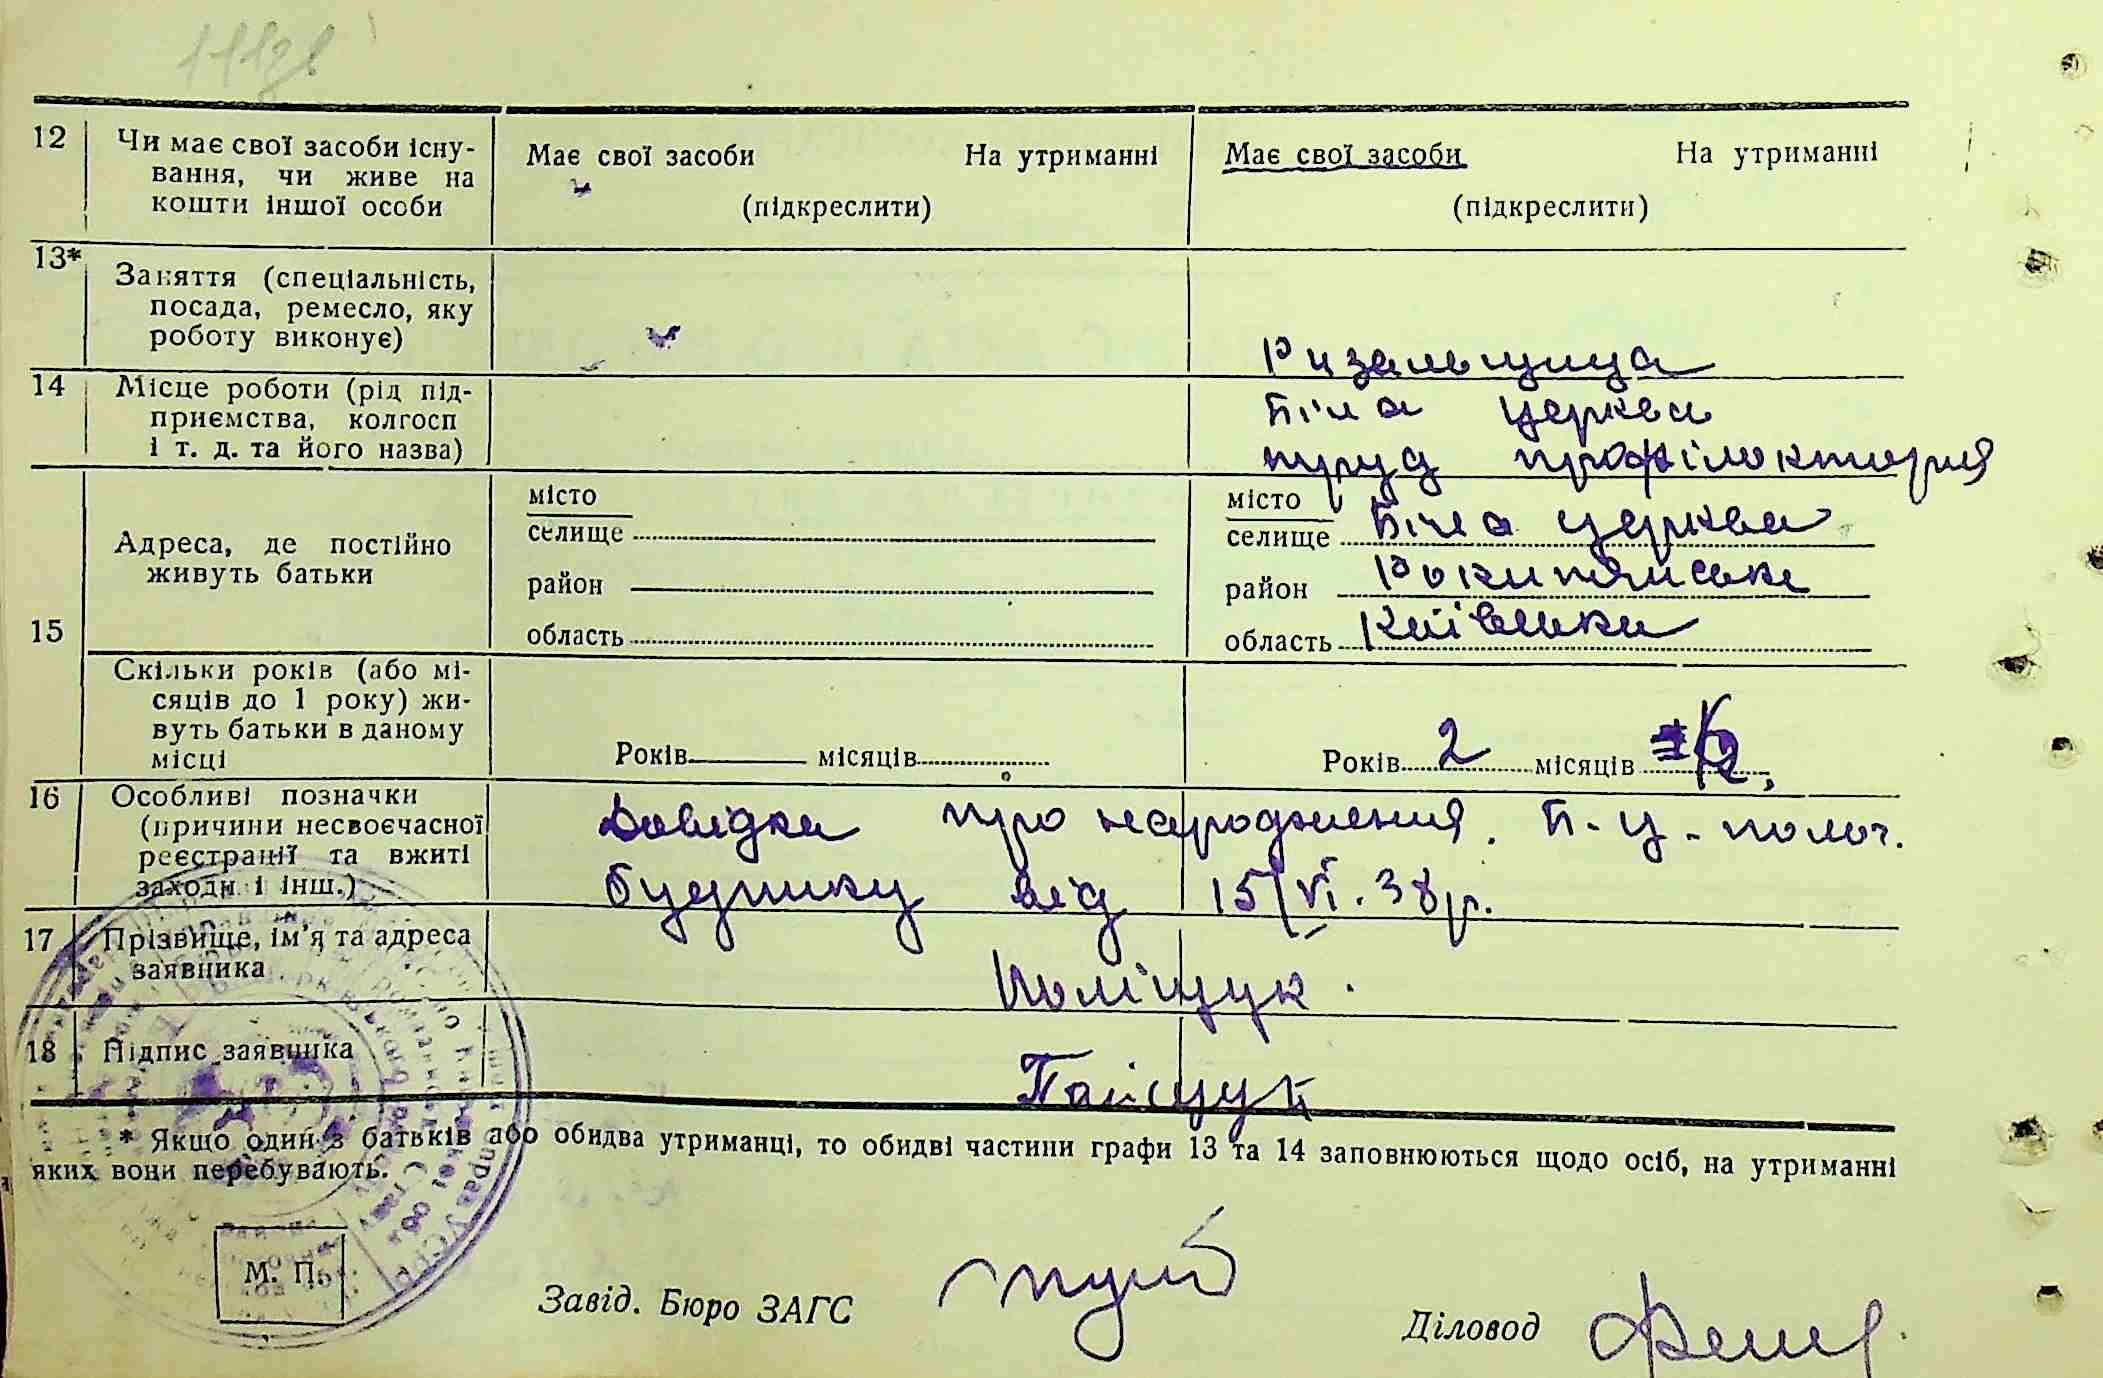 12 Чи має свої засоби існу-
вання, чи живе на
кошти іншої особи
Має свої засоби На утриманні
(підкреслити)
Має свої засоби На утриманні
(підкреслити)
13* Заняття (спеціальність,
посада, ремесло, яку
роботу виконує)
Ризальщица
14 Місце роботи (рід під-
приємства, колгосп
і т. д. та його назва)
Біла церква
труд профілокторія
15 Адреса, де постійно
живуть батьки
місто
селище
район
область
місто
селище Біла церква
район Рокитянське
область Київська
Скільки років (або мі-
сяців до 1 року) жи-
вуть батьки в даному
місці
Років місяців
Років 2 місяців
16 Особливі позначки
(причини несвоєчасної
реєстрації та вжиті
заходи і інш.)
Довідка про народження. Б-ц-полог.
будинку від 15/VI.38р.
17 Прізвище, ім'я та адреса
заявника
Поліщук.
18 Підпис заявника
Паіщук
* Якщо один з батьків або обидва утриманці, то обидві частини графи 13 та 14 заповнюються щодо осіб, на утриманні
яких вони перебувають.
М. П.
Завід. Бюро ЗАГС
Діловод